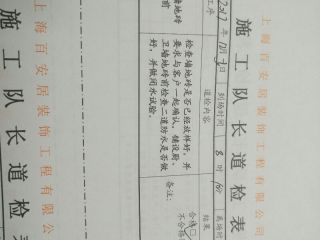 上海百安居装饰工程有限公司
施工队长道检表
2017年
到场时间
8时
离场时
工序
道检内容
结果
墙地砖
前
检查墙地是否已经放样好,并
要求与客户一起确认,铺设厨、
卫墙地砖前检查二道防水是否做
好,并做闭水试验。
合格
不合格
备注:
上海百安居装饰工程有限公
施工队长道检